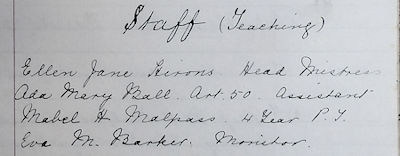 Staff (Teaching)
Ellen Jane Hirons. Head Mistress
Ada Mary Ball. Art. 50. Assistant
Mabel H Malpass. 4 Year P. T.
Eva M. Barker. Monitor.